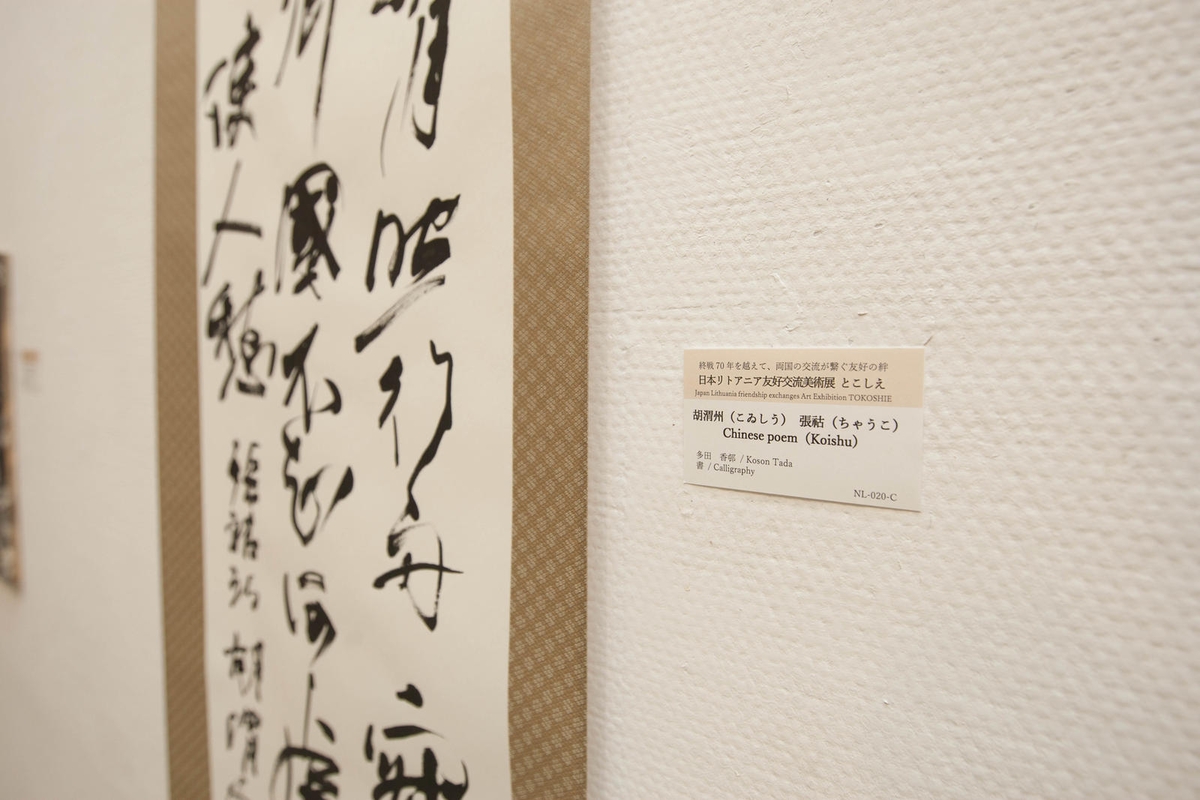 月照行舟寂
國不知何處
使人愁 張祜詩 胡渭
終戦70年を越えて、両国の交流が繋ぐ友好の絆
日本リトアニア友好交流美術展 とこしえ
Japan Lithuania friendship exchanges Art Exhibition TOKOSHIE
胡渭州（こゐしう） 張祜（ちゃうこ）
Chinese poem（Koishu）
多田 香邨 / Koson Tada
書 / Calligraphy
NL-020-C